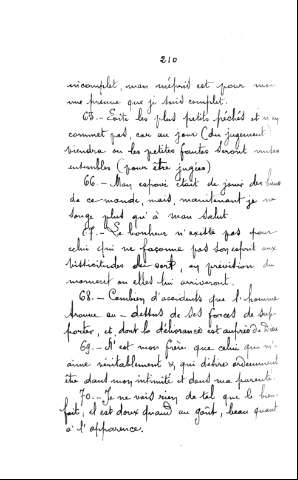 210
incomplet, mon mépris est pour moi
une preuve que je suis complet.
65.- Evite les plus petits péchés et n'en
commet pas, car au jour (du jugement)
viendra où les petites fautes seront mises
ensembles (pour être jugées)
66.- Mon espoir était de jouir des biens
de ce monde, mais, maintenant je ne
songe plus qu'à mon salut
67.- Le bonheur n'existe pas pour
celui qui ne façonne pas son esprit aux
vissicitudes du sort, en prévision du
moment où elles lui arriveront.
68.- Combien d'accidents que l'homme
trouve au-dessus de ses forces de sup-
porter, et, dont la délivrance est auprès de Dieu
69.- N'est mon frère que celui qui m'
aime véritablement &, qui désire ardemment
être dans mon intimité et dans ma parenté.
70.- Je ne vois rien de tel que le bien-
fait, il est doux quand au goût, beau quant
à l'apparence.